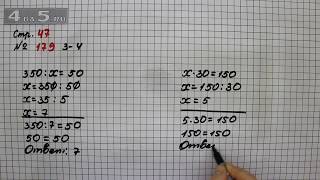 4 на 5.ru
Стр. 47
№ 179 3-4
350 : x = 50
x = 350 : 50
x = 35 : 5
x = 7
350 : 7 = 50
50 = 50
Ответ: 7
x · 30 = 150
x = 150 : 30
x = 5
5 · 30 = 150
150 = 150
Отве